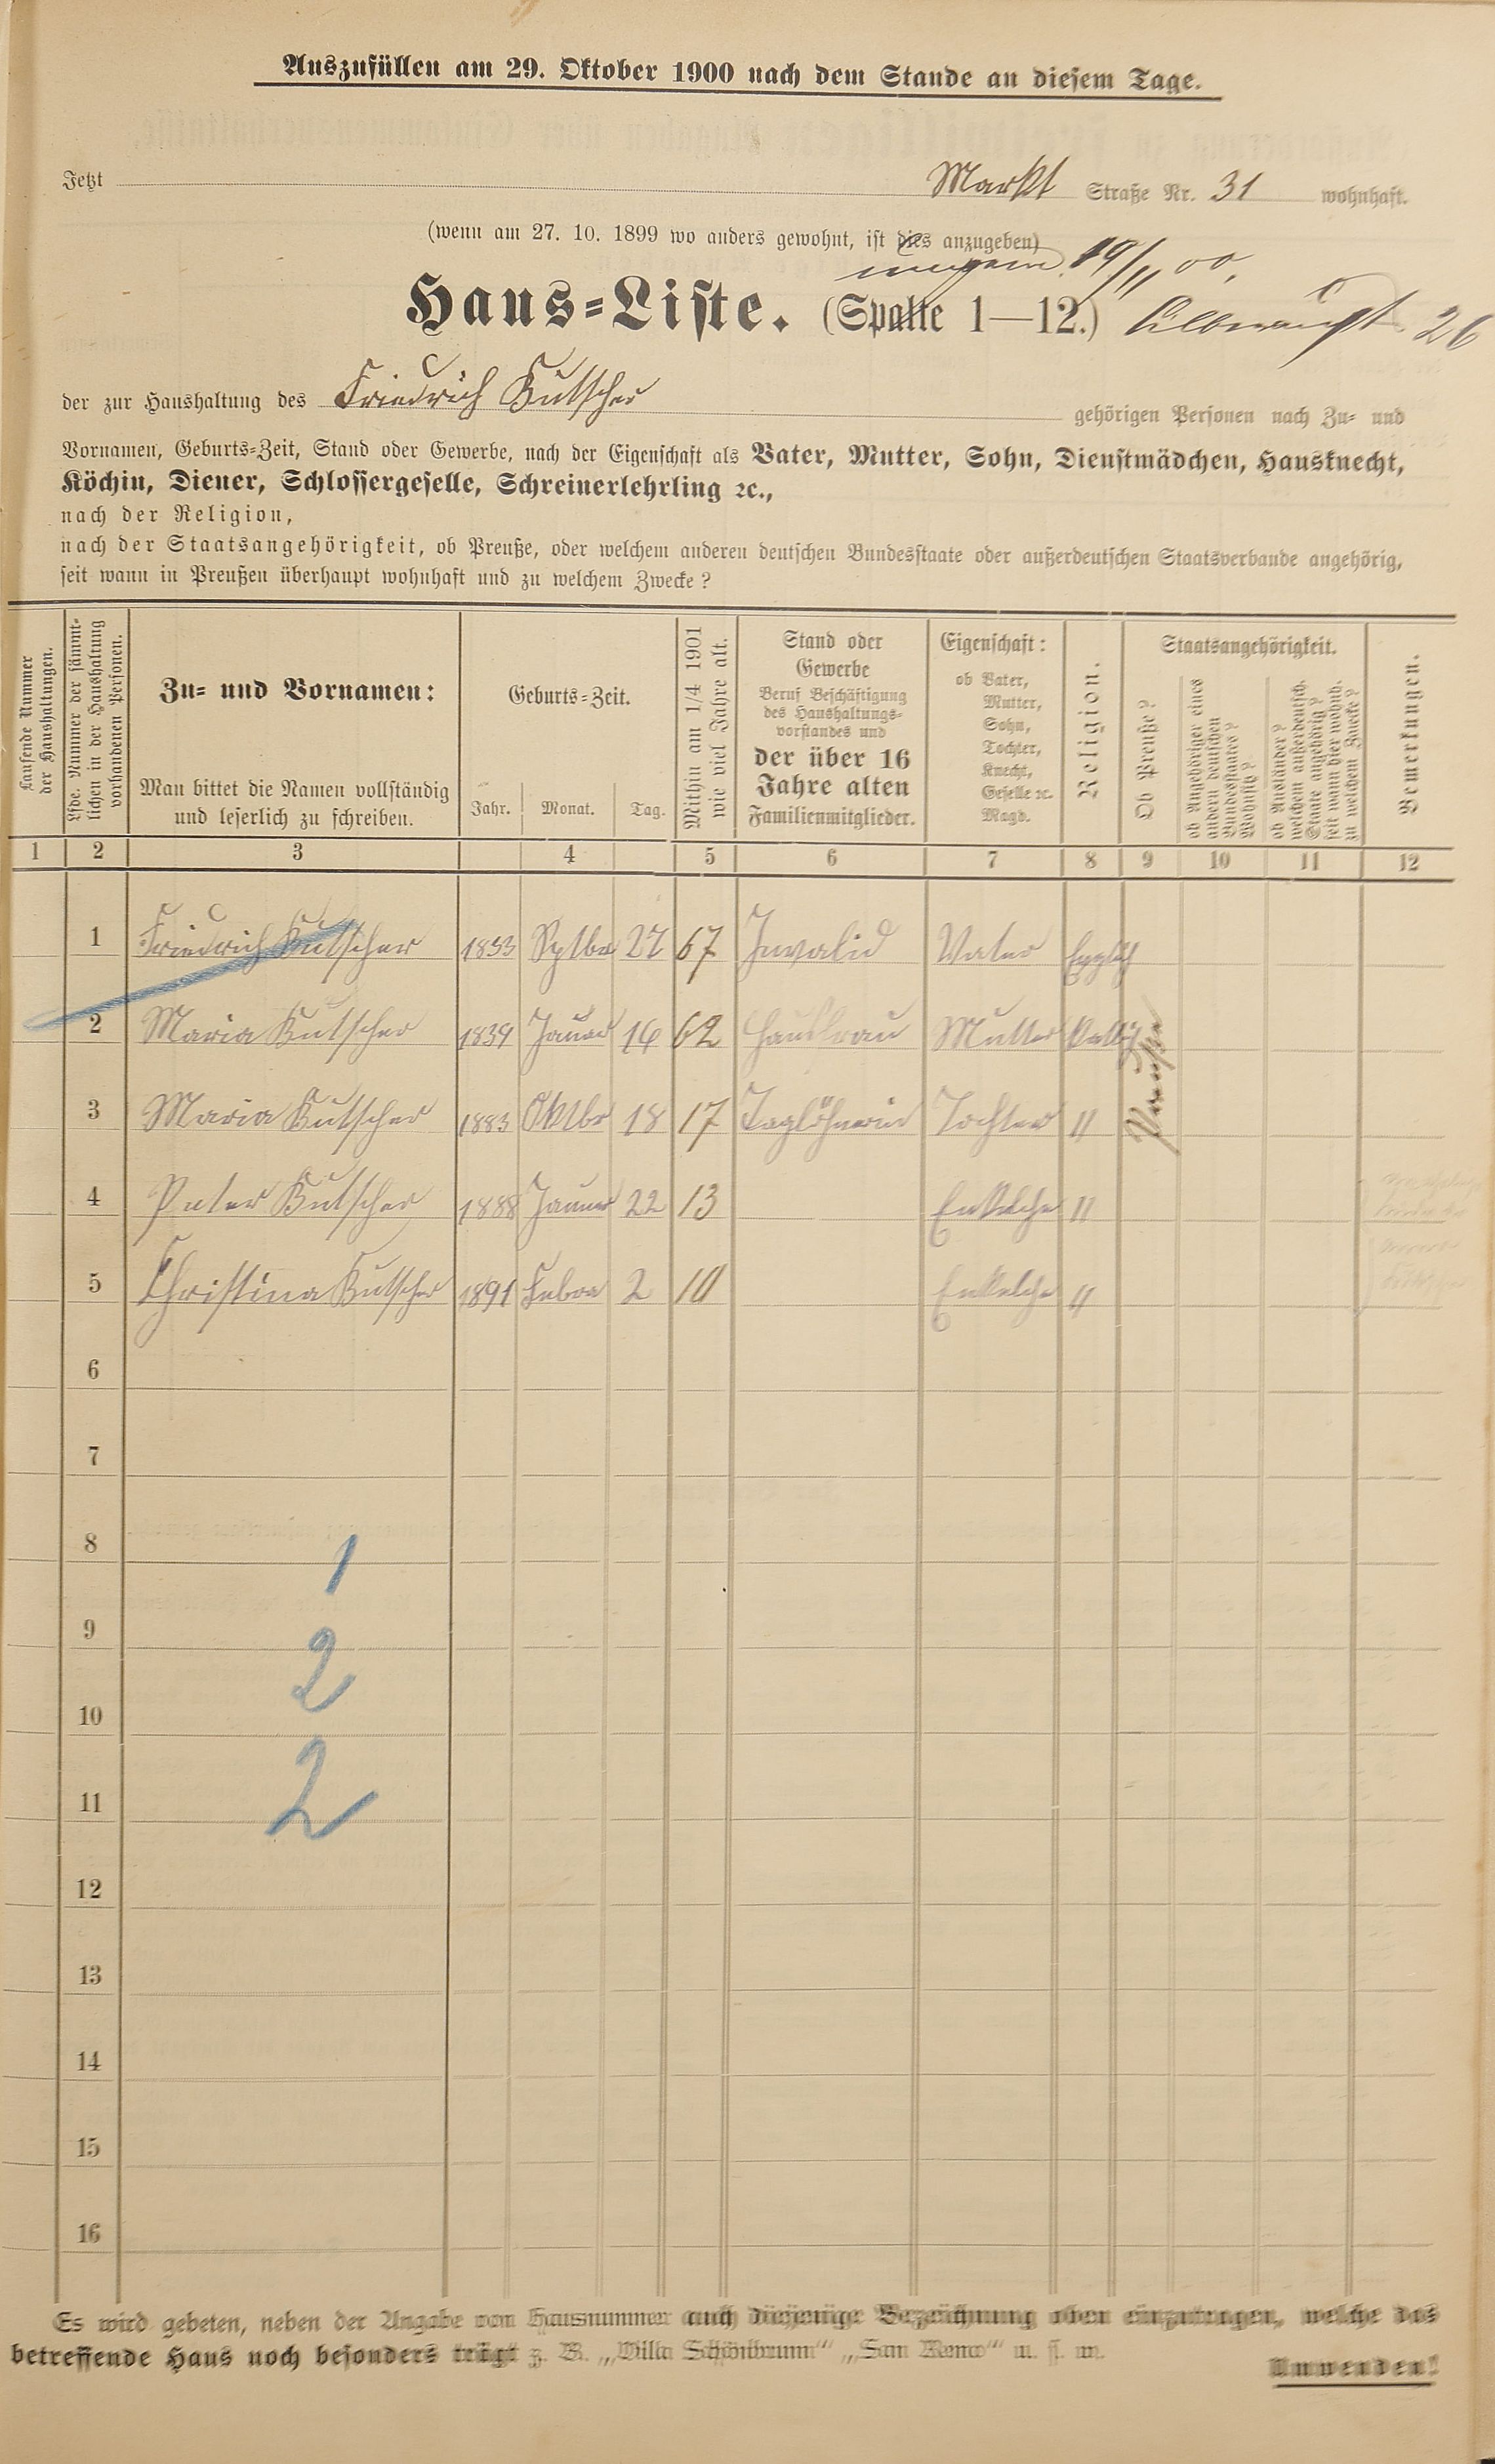 Auszufüllen am 29. Oktober 1900 nach dem Stande an diesem Tage.
Jetzt Markt Straße Nr. 31 wohnhaft.
(wenn am 27. 10. 1899 wo anders gewohnt, ist dies anzugeben)
19/11 00.
Haus-Liste. (Spalte 1—12.) 26
der zur Haushaltung des Friedrich Kutscher gehörigen Personen nach Zu- und
Vornamen, Geburts-Zeit, Stand oder Gewerbe, nach der Eigenschaft als Vater, Mutter, Sohn, Dienstmädchen, Hausknecht,
Köchin, Diener, Schlossergeselle, Schreinerlehrling ꝛc.,
nach der Religion,
nach der Staatsangehörigkeit, ob Preuße, oder welchem anderen deutschen Bundesstaate oder außerdeutschen Staatsverbande angehörig,
seit wann in Preußen überhaupt wohnhaft und zu welchem Zwecke?
Laufende Nummer
der Haushaltungen.
Lfde. Nummer der sämmt-
lichen in der Haushaltung
vorhandenen Personen.
Zu- und Vornamen:
Man bittet die Namen vollständig
und leserlich zu schreiben.
Geburts-Zeit.
Jahr. Monat. Tag.
Mithin am 1/4 1901
wie viel Jahre alt.
Stand oder
Gewerbe
Beruf Beschäftigung
des Haushaltungs-
vorstandes und
der über 16
Jahre alten
Familienmitglieder.
Eigenschaft:
ob Vater,
Mutter,
Sohn,
Tochter,
Knecht,
Geselle ꝛc.
Magd.
Religion.
Staatsangehörigkeit.
Ob Preuße?
ob Angehöriger eines
andern deutschen
Bundesstaates?
Wohnsitz?
ob Ausländer?
welchem außerdeutsch.
Staate angehörig?
seit wann hier wohnh.
zu welchem Zwecke?
Bemerkungen.
1 2 3 4 5 6 7 8 9 10 11 12
1 Friedrich Kutscher 1833 Sptbr 27 67 Invalid Vater
2 Maria Kutscher 1839 Januar 16 62 Hausfrau Mutter Kathl
3 Maria Kutscher 1883 Oktbr 18 17 Taglöhnerin Tochter "
Preuße
4 Peter Kutscher 1888 Januar 22 13 Enkelche "
5 Christina Kutscher 1891 Febra 2 10 Enkelche "
6
7
8 1
9
2
10
11 2
12
13
14
15
16
Es wird gebeten, neben der Angabe von Hausnummer auch diejenige Bezeichnung oben einzutragen, welche das
betreffende Haus noch besonders trägt z. B. „Villa Schönbrunn“ „San Remo“ u. s. w.
Umwenden!